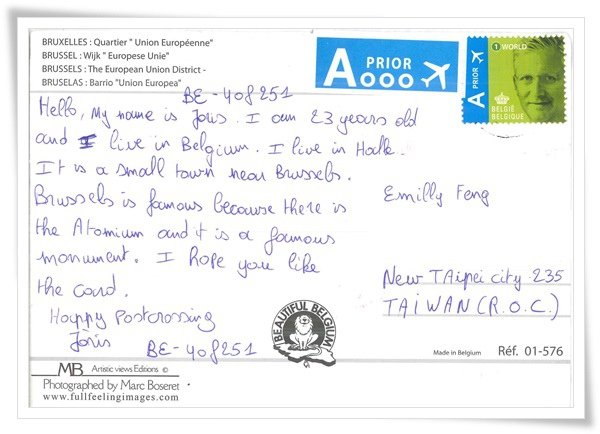 BRUXELLES : Quartier " Union Européenne"
BRUSSEL : Wijk " Europese Unie"
BRUSSELS : The European Union District -
BRUSELAS : Barrio "Union Europea"
A PRIOR
1 WORLD
A PRIOR
BELGIË
BELGIQUE
BE-408251
Hello, My name is Joris. I am 23 years old
and I live in Belgium. I live in Halle.
It is a small town near Brussels.
Brussels is famous because there is
the Atomium and it is a famous
monument. I hope you like
the card.
Happy Postcrossing
Joris
BE-408251
Emilly Feng
New TAipei city 235
TAIWAN (R.O.C.)
BEAUTIFUL BELGIUM
Made in Belgium
Réf. 01-576
MB Artistic views Editions ©
Photographed by Marc Boseret
www.fullfeelingimages.com